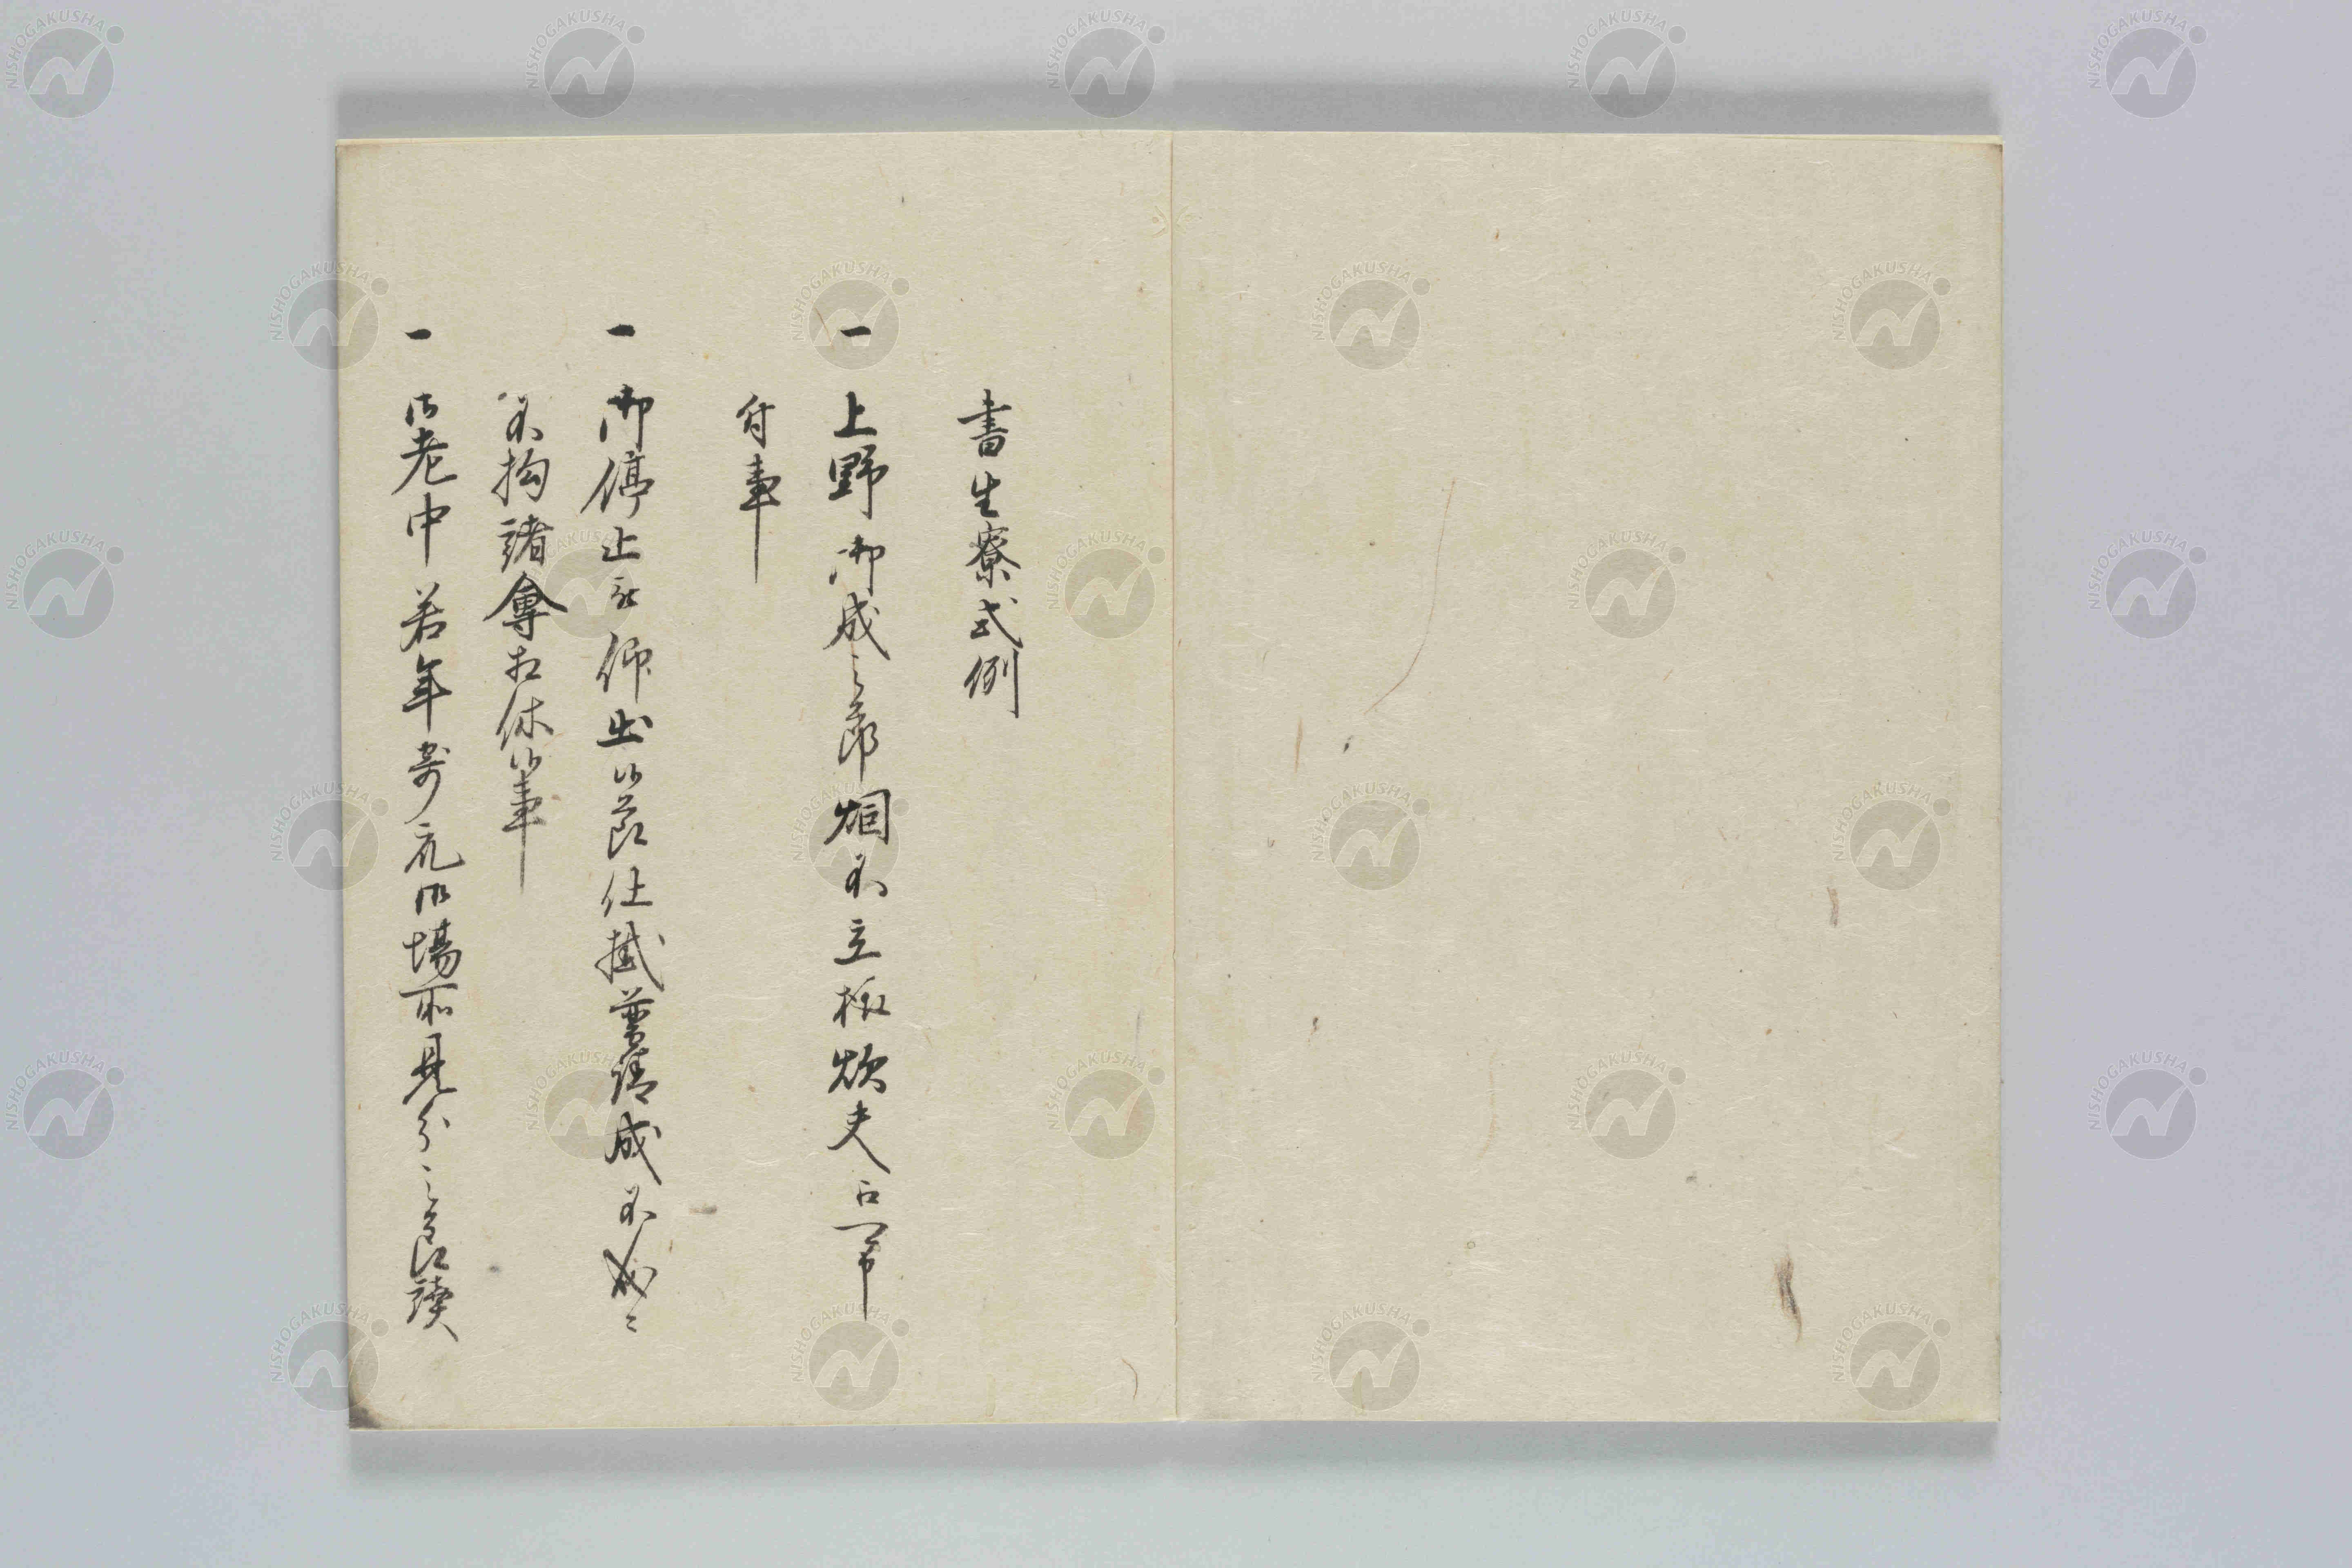 書生寮式例
一 上野御成之節烟不立様炊夫占申
付事
一 御停止被仰出候節仕掛普請成不成ニ
不拘諸會相休候事
一 御老中若年寄衆御場所見分之節讀
NISHOGAKUSHA